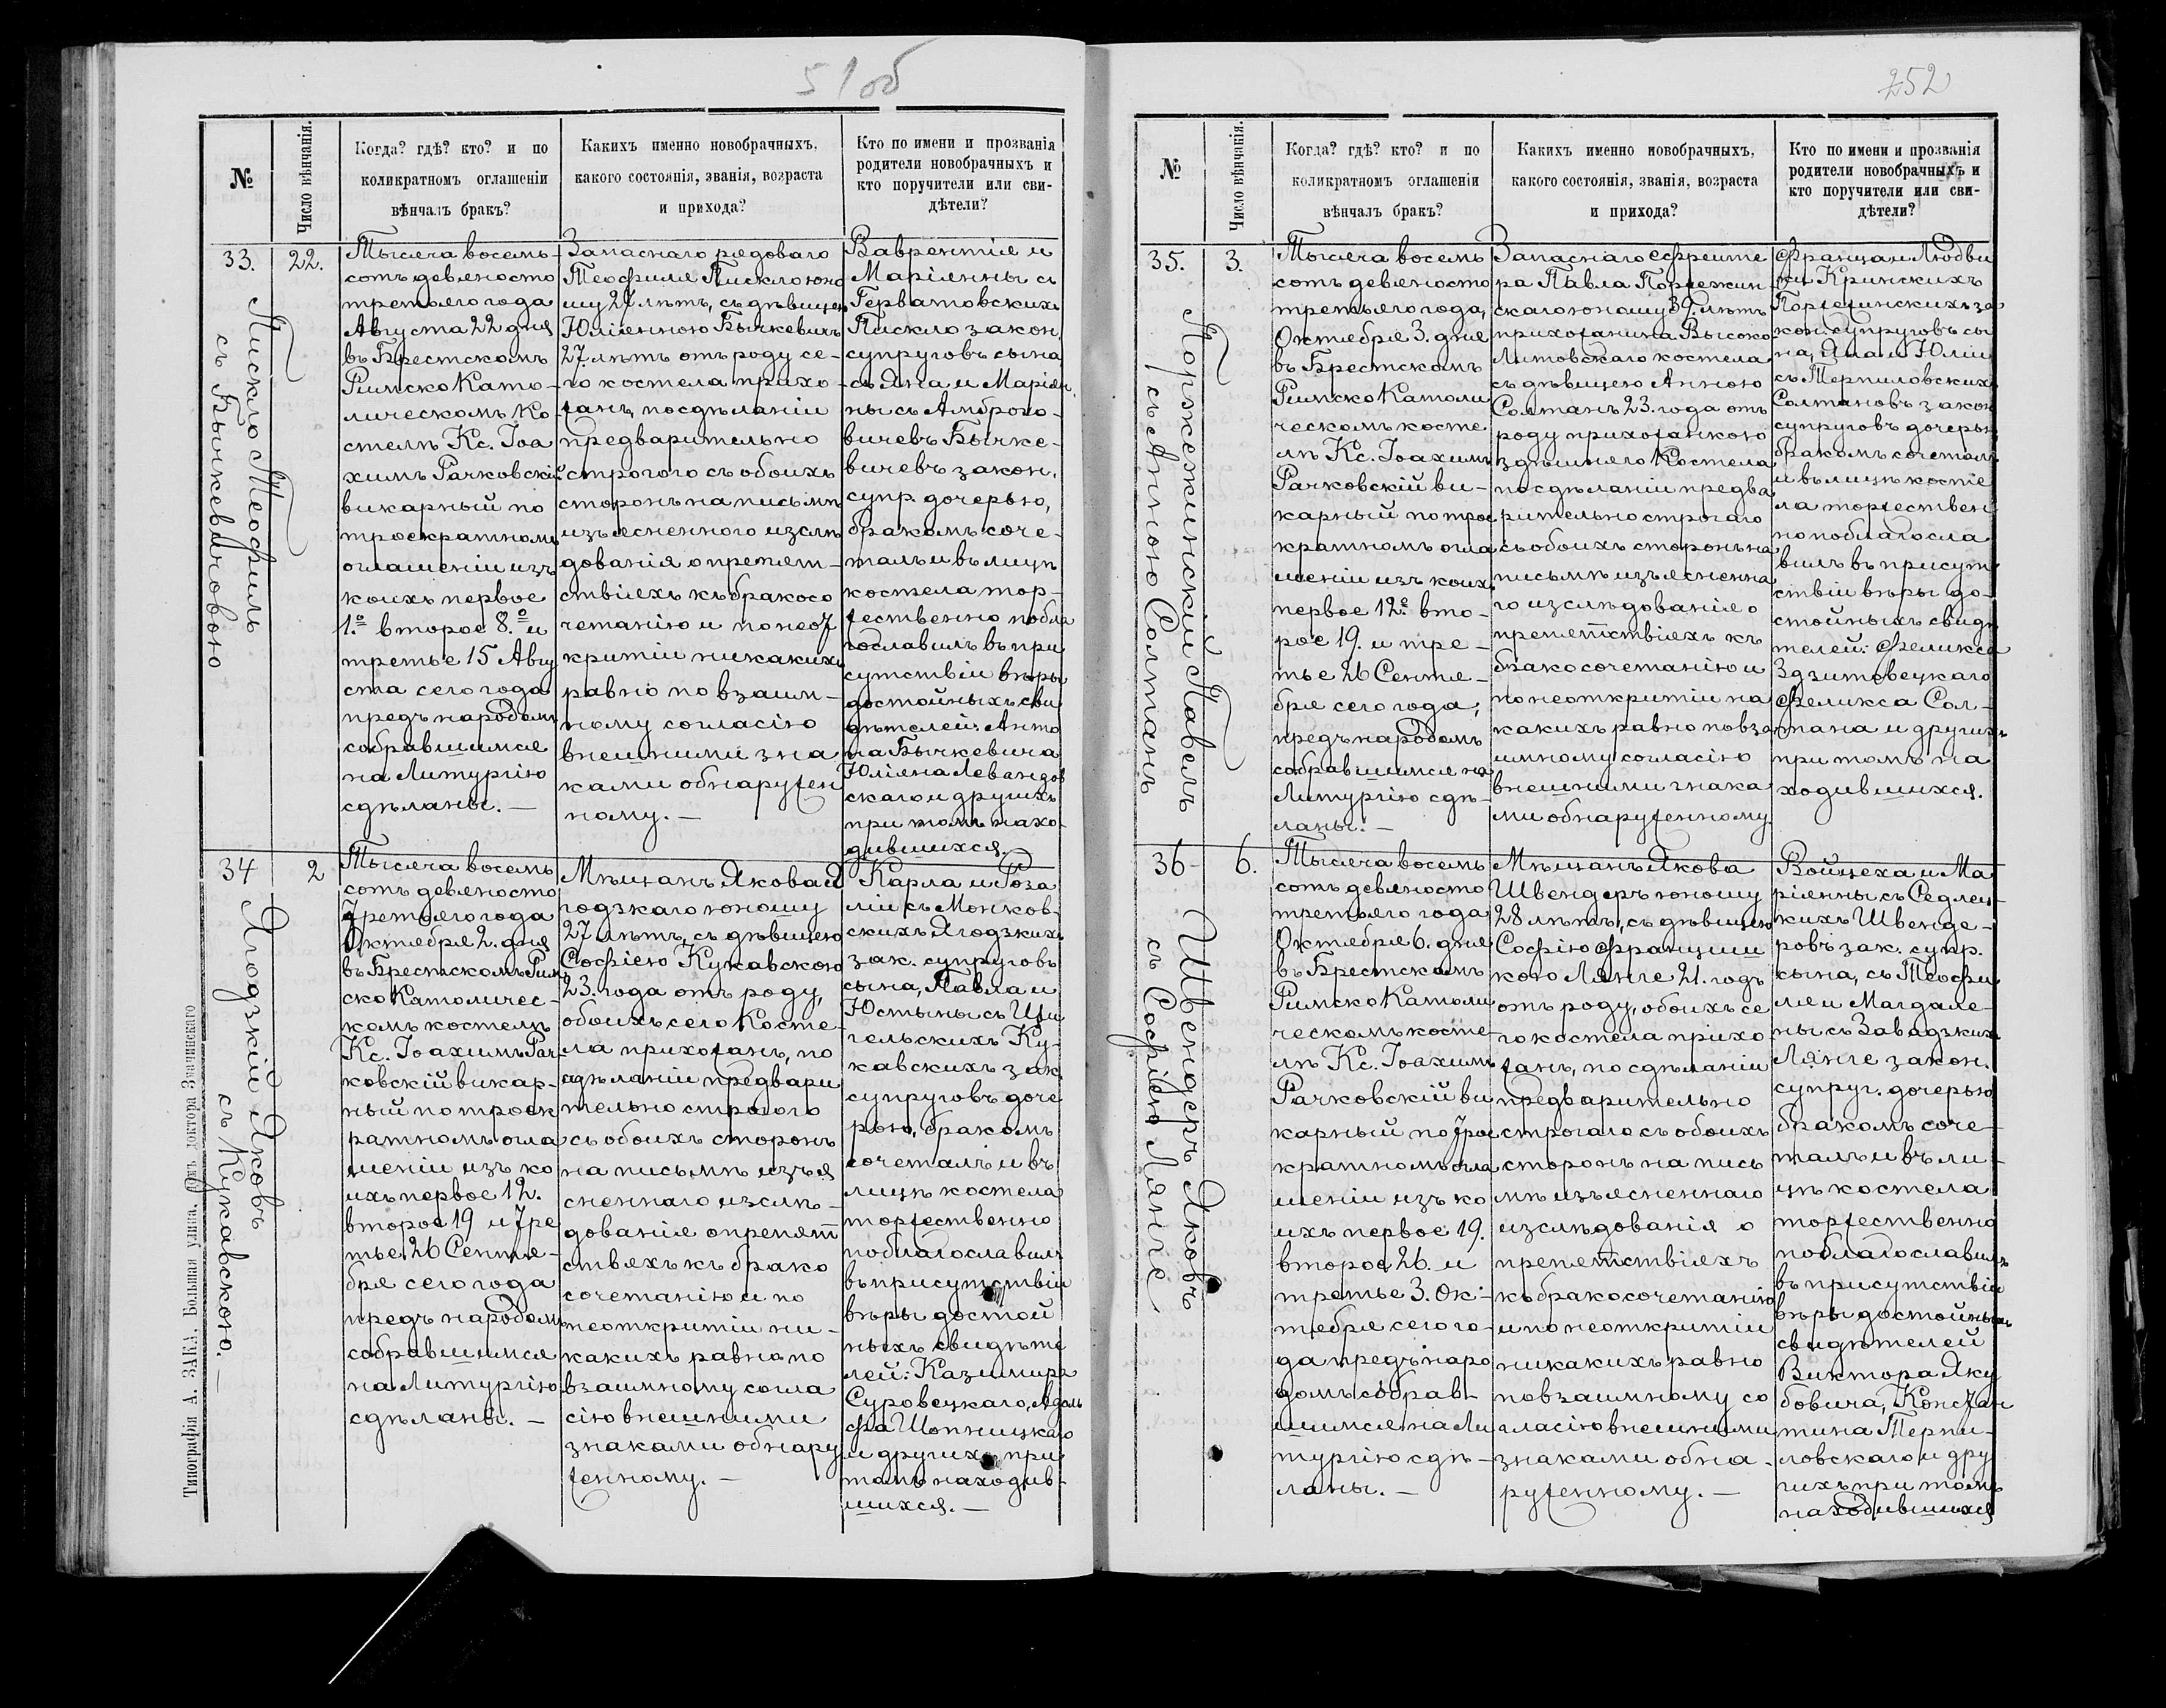 51об
№
Число вѣнчанія.
Когда? гдѣ? кто? и по
коликратномъ оглашеніи
вѣнчалъ бракъ?
Какихъ именно новобрачныхъ,
какого состоянія, званія, возраста
и прихода?
Кто по имени и прозванія
родители новобрачныхъ и
кто поручители или сви-
дѣтели?
33.
22.
Пискло Теофиль
съ Бычкевичовою
Тысяча восемь-
сотъ девяносто
третьяго года
Августа 22 дня
въ Брестскомъ
Римско Като-
лическомъ Ко
стелѣ Кс. Іоа
химъ Рачковскій
викарный по
троекратномъ
оглашеніи изъ
коихъ первое
1.º второе 8.º и
третье 15 Авгу
ста сего года
предъ народомъ
собравшимся
на Литургію
сдѣланы. —
Запаснаго рядоваго
Теофиля Пискло юно
шу 27 лѣтъ, съ дѣвицею
Юліянною Бычкевичъ
27. лѣтъ отъ роду се-
го костела прихо-
жанъ, посдѣланіи
предварительно
строгого съ обоихъ
сторонъ на письмѣ
изъясненного изслѣ
дованія о препят-
ствіяхъ къ бракосо
четанію и по неот
крытіи никакихъ
равно по взаим-
ному согласію
внешними зна
ками обнаружен
ному. —
Ваврентія и
Маріянны съ
Герватовскихъ
Пискло закон.
супруговъ сына,
съ Яна и Маріян.
ны съ Амброго-
вичевъ Бычке-
вичевъ закон.
супр. дочерью,
бракомъ соче-
талъ и въ лицѣ
костела тор-
жественно побла
гославилъ въ при
сутствіи вѣры
достойныхъ сви
дѣтелей: Анто
на Бычкевича
Юліяна Левандов
скаго и другихъ
при томъ нахо-
дившихся.
34
2
Ягодзкій Яковъ
съ Кукавскою. —
Тысяча восемь
сотъ девяносто
третьяго года
Октября 2. дня
въ Брестскомъ Рим
ско Католичес-
комъ костелѣ
Кс. Іоахимъ Рач-
ковскій викар-
ный по троек
ратномъ огла
шеніи изъ ко
ихъ первое 12.
второе 19 и тре
тье 26 Сентя-
бря сего года
предъ народомъ
собравшимся
на Литургію
сдѣланы. —
Мѣщанъ Якова Я
годзкаго юношу
27 лѣтъ, съ дѣвицею
Софіею Кукавскою
23. года отъ роду,
обоихъ сего Косте-
ла прихожанъ, по
сдѣланіи предвари
тельно строгого
съ обоихъ сторонъ
на письмѣ изъя
сненнаго изслѣ-
дованія о препят
ствяхъ къ брако
сочетанію и по
неоткрытіи ни-
какихъ равно по
взаимному согла
сію внешними
знаками обнару
женному. —
Карла и Роза
ліи съ Монков-
скихъ Ягодзкихъ
зак. супруговъ
сына, Павла и
Юстыны съ Це
гельскихъ Ку-
кавскихъ зак.
супруговъ доче
рью, бракомъ
сочеталъ и въ
лицѣ костела
торжественно
поблагославилъ
въ присутствіи
вѣры достой
ныхъ свидѣте
лей: Казимира
Суровецкаго, Адоль
фа Шопницкаго
и другихъ при
томъ находив-
шихся. —
Типографія А. ЗАКА, Большая улица, домъ доктора Значинскаго
252
№
Число вѣнчанія.
Когда? гдѣ? кто? и по
коликратномъ оглашеніи
вѣнчалъ бракъ?
Какихъ именно новобрачныхъ,
какого состоянія, званія, возраста
и прихода?
Кто по имени и прозванія
родители новобрачныхъ и
кто поручители или сви-
дѣтели?
35.
3.
Поржежинскій Павелъ
съ Анною Солтанъ
Тысяча восемь
сотъ девяносто
третьяго года,
Октября 3. дня
въ Брестскомъ
Римско Католи
ческомъ косте
лѣ Кс. Іоахимъ
Рачковскій ви-
карный по трое
кратномъ огла
шеніи изъ коихъ
первое 12º вто-
рое 19. и тре-
тье 26 Сентя-
бря сего года,
предъ народомъ
собравшимся на
Литургію сдѣ-
ланы. —
Запаснаго ефрейте
ра Павла Поржежин
скаго юношу 39. лѣтъ
прихожанина Высоко
Литовскаго костела
съ дѣвицею Анною
Солтанъ 23. года отъ
роду прихожанкою
здѣшняго Костела
посдѣланіи предва
рительно строгаго
съ обоихъ сторонъ на
письмѣ изъясненна
го изслѣдованія о
препятствіяхъ къ
бракосочетанію и
по неоткрытіи на
какихъ равно по вза
имному согласію
внешними знака
ми обнаруженному
Францаи Людви
ки Кринскихъ
Поржежинскихъ за
кон. супруговъ сы
на, Яна и Юліи
съ Терпиловскихъ
Солтановъ закон
супруговъ дочерью
бракомъ сочеталъ
и въ лицѣ косте
ла торжествен
но поблагосла
вилъ въ присут
ствіи вѣры до-
стойныхъ свидѣ
телей: Феликса
Здзитовецкаго
Феликса Сол-
тана и другихъ
при томъ на
ходившихся.
36
6.
Швендеръ Яковъ
съ Софіею Лянге
Тысяча восемь
сотъ девяносто
третьяго года
Октября 6. дня
въ Брестскомъ
Римско Католи
ческомъ косте-
лѣ Кс. Іоахимъ
Рачковскій ви
карный по трое
кратномъ огла
шеніи изъ ко
ихъ первое 19.
второе 26. и
третье 3. Ок-
тября сего го-
да предъ наро
домъ собрав-
шимся на Ли
тургію сдѣ-
ланы. —
Мѣщанъ Якова
Швендеръ юношу
28 лѣтъ, съ дѣвицею
Софію Францишки
кою Лянге 21. годъ
отъ роду, обоихъ се
го костела прихо
жанъ, по сдѣланіи
предварительно
строгаго съ обоихъ
сторонъ на пись
мѣ изъясненнаго
изслѣдованія о
препятствіяхъ
къ бракосочетанію
и по неоткрытіи
никакихъ равно
повзаимному со
гласію внешними
знаками обна-
руженному. —
Войцеха и Ма
ріянны съ Седлец-
кихъ Швенде-
ровъ зак. супр.
сына, съ Теофи
ля и Магдале-
ны съ Завадзкихъ
Лянге закон.
супруг. дочерью
бракомъ соче-
талъ и въ ли-
цѣ костела
торжественно
поблагославилъ
въ присутствіи
вѣры достойныхъ
свидѣтелей
Виктора Яку
бовича, Констан
тина Терпи-
ловскаго и дру
гихъ при томъ
находившихся